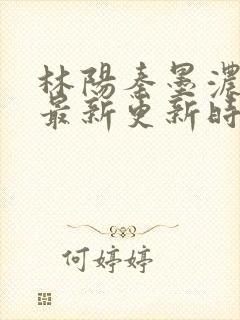 林陽秦墨濃
最新更新時
何婷婷